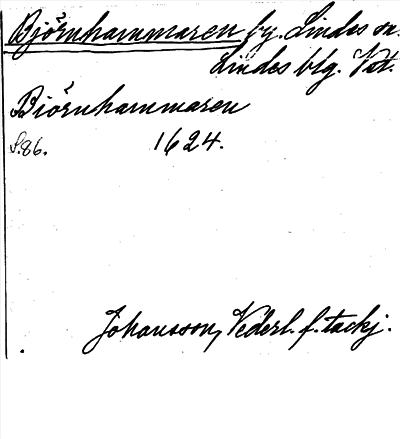 Björnhammaren by. Lindes sn.
Lindes blg. Vat.
Biörnhammaren
S. 86. 1624.
Johansson, Vederl. f. tackj.